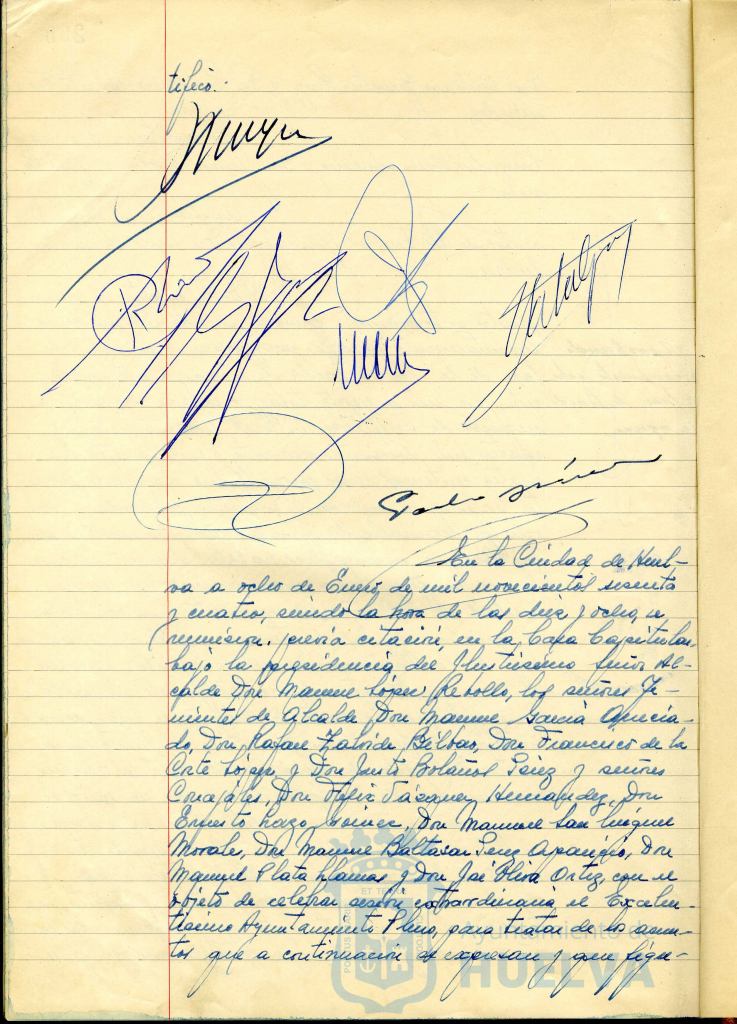 tifico.-
En la Ciudad de Huel-
va a ocho de Enero de mil novecientos sesenta
y cuatro, siendo la hora de las diez y ocho, se
reunieron, previa citación, en la Casa Capitular
bajo la presidencia del Ilustrísimo Señor Al-
calde Don Manuel López Rebollo, los señores Te-
nientes de Alcalde Don Manuel García
do, Don Rafael Bilbao, Don Francisco de la
Corte López y Don Justo Bolaños Pérez y señores
Concejales, Don Félix Vázquez Hernández, Don
Ernesto Lazo Don Manuel San Miguel
Morales, Don Manuel Baltasar Pérez Aparicio, Don
Manuel Plata Llamas y Don José Oliva Ortiz, con el
objeto de celebrar sesión extraordinaria el Excelen-
tísimo Ayuntamiento Pleno, para tratar de los asun-
tos que a continuación se expresan y que figu-
Ayuntamiento de
HUELVA